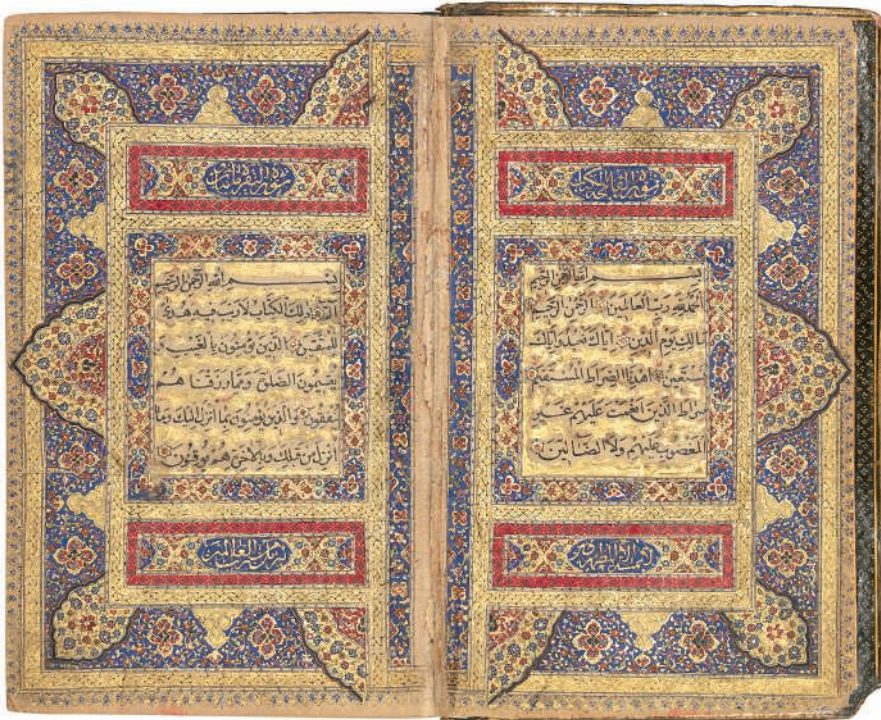 سورة الفاتحة
بسم الله الرحمن الرحيم
الحمد لله رب العالمين الرحمن الرحيم
مالك يوم الدين اياك نعبد واياك
نستعين اهدنا الصراط المستقيم
صراط الذين انعمت عليهم غير
المغضوب عليهم ولا الضالين
لا يمسه الا المطهرون
سورة البقرة
بسم الله الرحمن الرحيم
الم ذلك الكتاب لا ريب فيه هدى
للمتقين الذين يؤمنون بالغيب و
يقيمون الصلوة ومما رزقناهم
ينفقون والذين يؤمنون بما انزل اليك وما
انزل من قبلك وبالاخرة هم يوقنون
تنزيل من رب العالمين